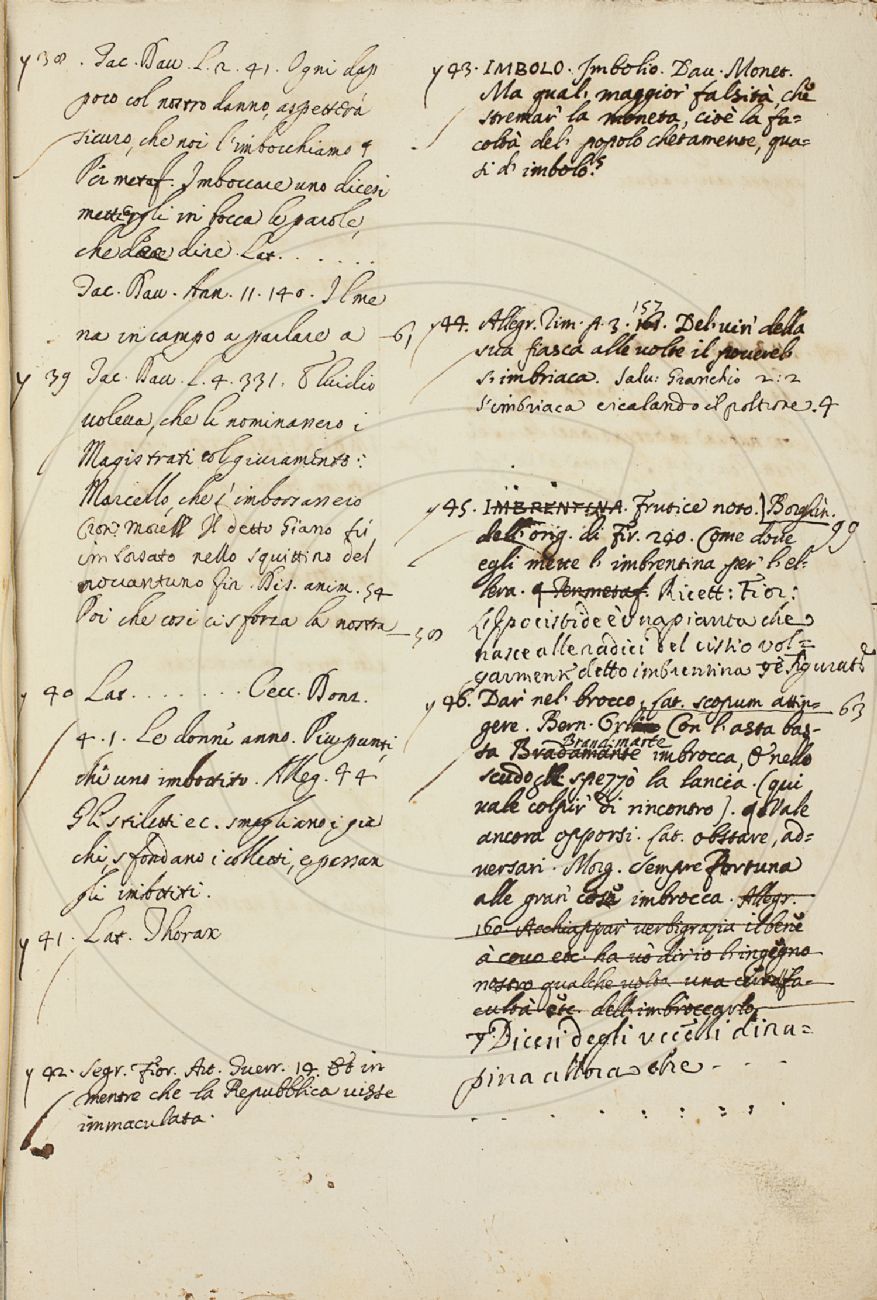 y 38. Tac. Dav. L. 2. 41. Ogni dap
poco col nostro danno, aspetterà
sicuro, che noi l'imbocchiamo 4
Per metaf. Imboccare uno dicesi
mettergli in bocca le parole,
che dire. Lat. . . . . . .
Tac. Dav. Ann. 11. 140. Il me
na in campo a parlare a 61
y 39 Tac. Dav. L. 4. 331.
voleva, che li nominassero i
Magistrati col giuramento:
Marcello, che l'imborsassero
Cron: Morell Il detto Giano fù
imborsato nello squittino del
novantuno fir. Dis. anim. 54
Poi che così ci sforza la nostra 58
y 40 Lat. . . . . . . . Cecc. Donz.
4. 1. Le donn' anno. Piu punti,
ch' uno imbottito. Alleg. 44
Gli stiletti ec. smagliano i giac
chi, sfondano i colletti, e passan
gli imbottiti.
y 41. Lat. Thorax
y 42. Segr. Fior. Art. Guerr. 14. Et in
mentre che la Repubblica visse
immaculata.
y 43. IMBOLO. Imbolio. Dav. Monet.
Ma qual maggior falsità, che
stremar la moneta, cioè la fa=
coltà del popolo chetamente, qua=
si di imbolo?
y 44. Allegr. rim. p. 3. 157 161. Del vin della
sua fiasca alle volte il poverel
s'imbriaca. Salv: Granchio 2: 2
s'imbriaca cicalando il poltrone. 4
y 45. IMBRENTINA. Frutice noto. Borghin.
dell' orig. di Fir. 290. Come dove 99
egli mette l' imbrentina per l'el=
lera. 4 Per metaf. Ricett: Fior:
L'Ipocistide è una pianta che
nasce alle radici del cistio vol=
garmente detto imbrentina
y 46. Dar nel brocco, Lat. scopum attin= 63
gere. Bern. Orl. Con l'asta bas=
sa Bradamante Brandimarte imbrocca, & nello
scudo gli spezzò la lancia. (qui
vale colpir di rincontro). Vale
ancora opporsi. Lat. obstare, ad=
versari. Morg. Sempre Fortuna
alle gran cose imbrocca. Allegr.
160 Acchiappar verbigrazia il bene
à covo etc. ha vò dir io l'ingegno
nostro qualche volta una fa=
cultà etc. dell' imbroccarlo
Dicesi degli uccelli di ra=
pina allora che . . . .
. . . . . . . .